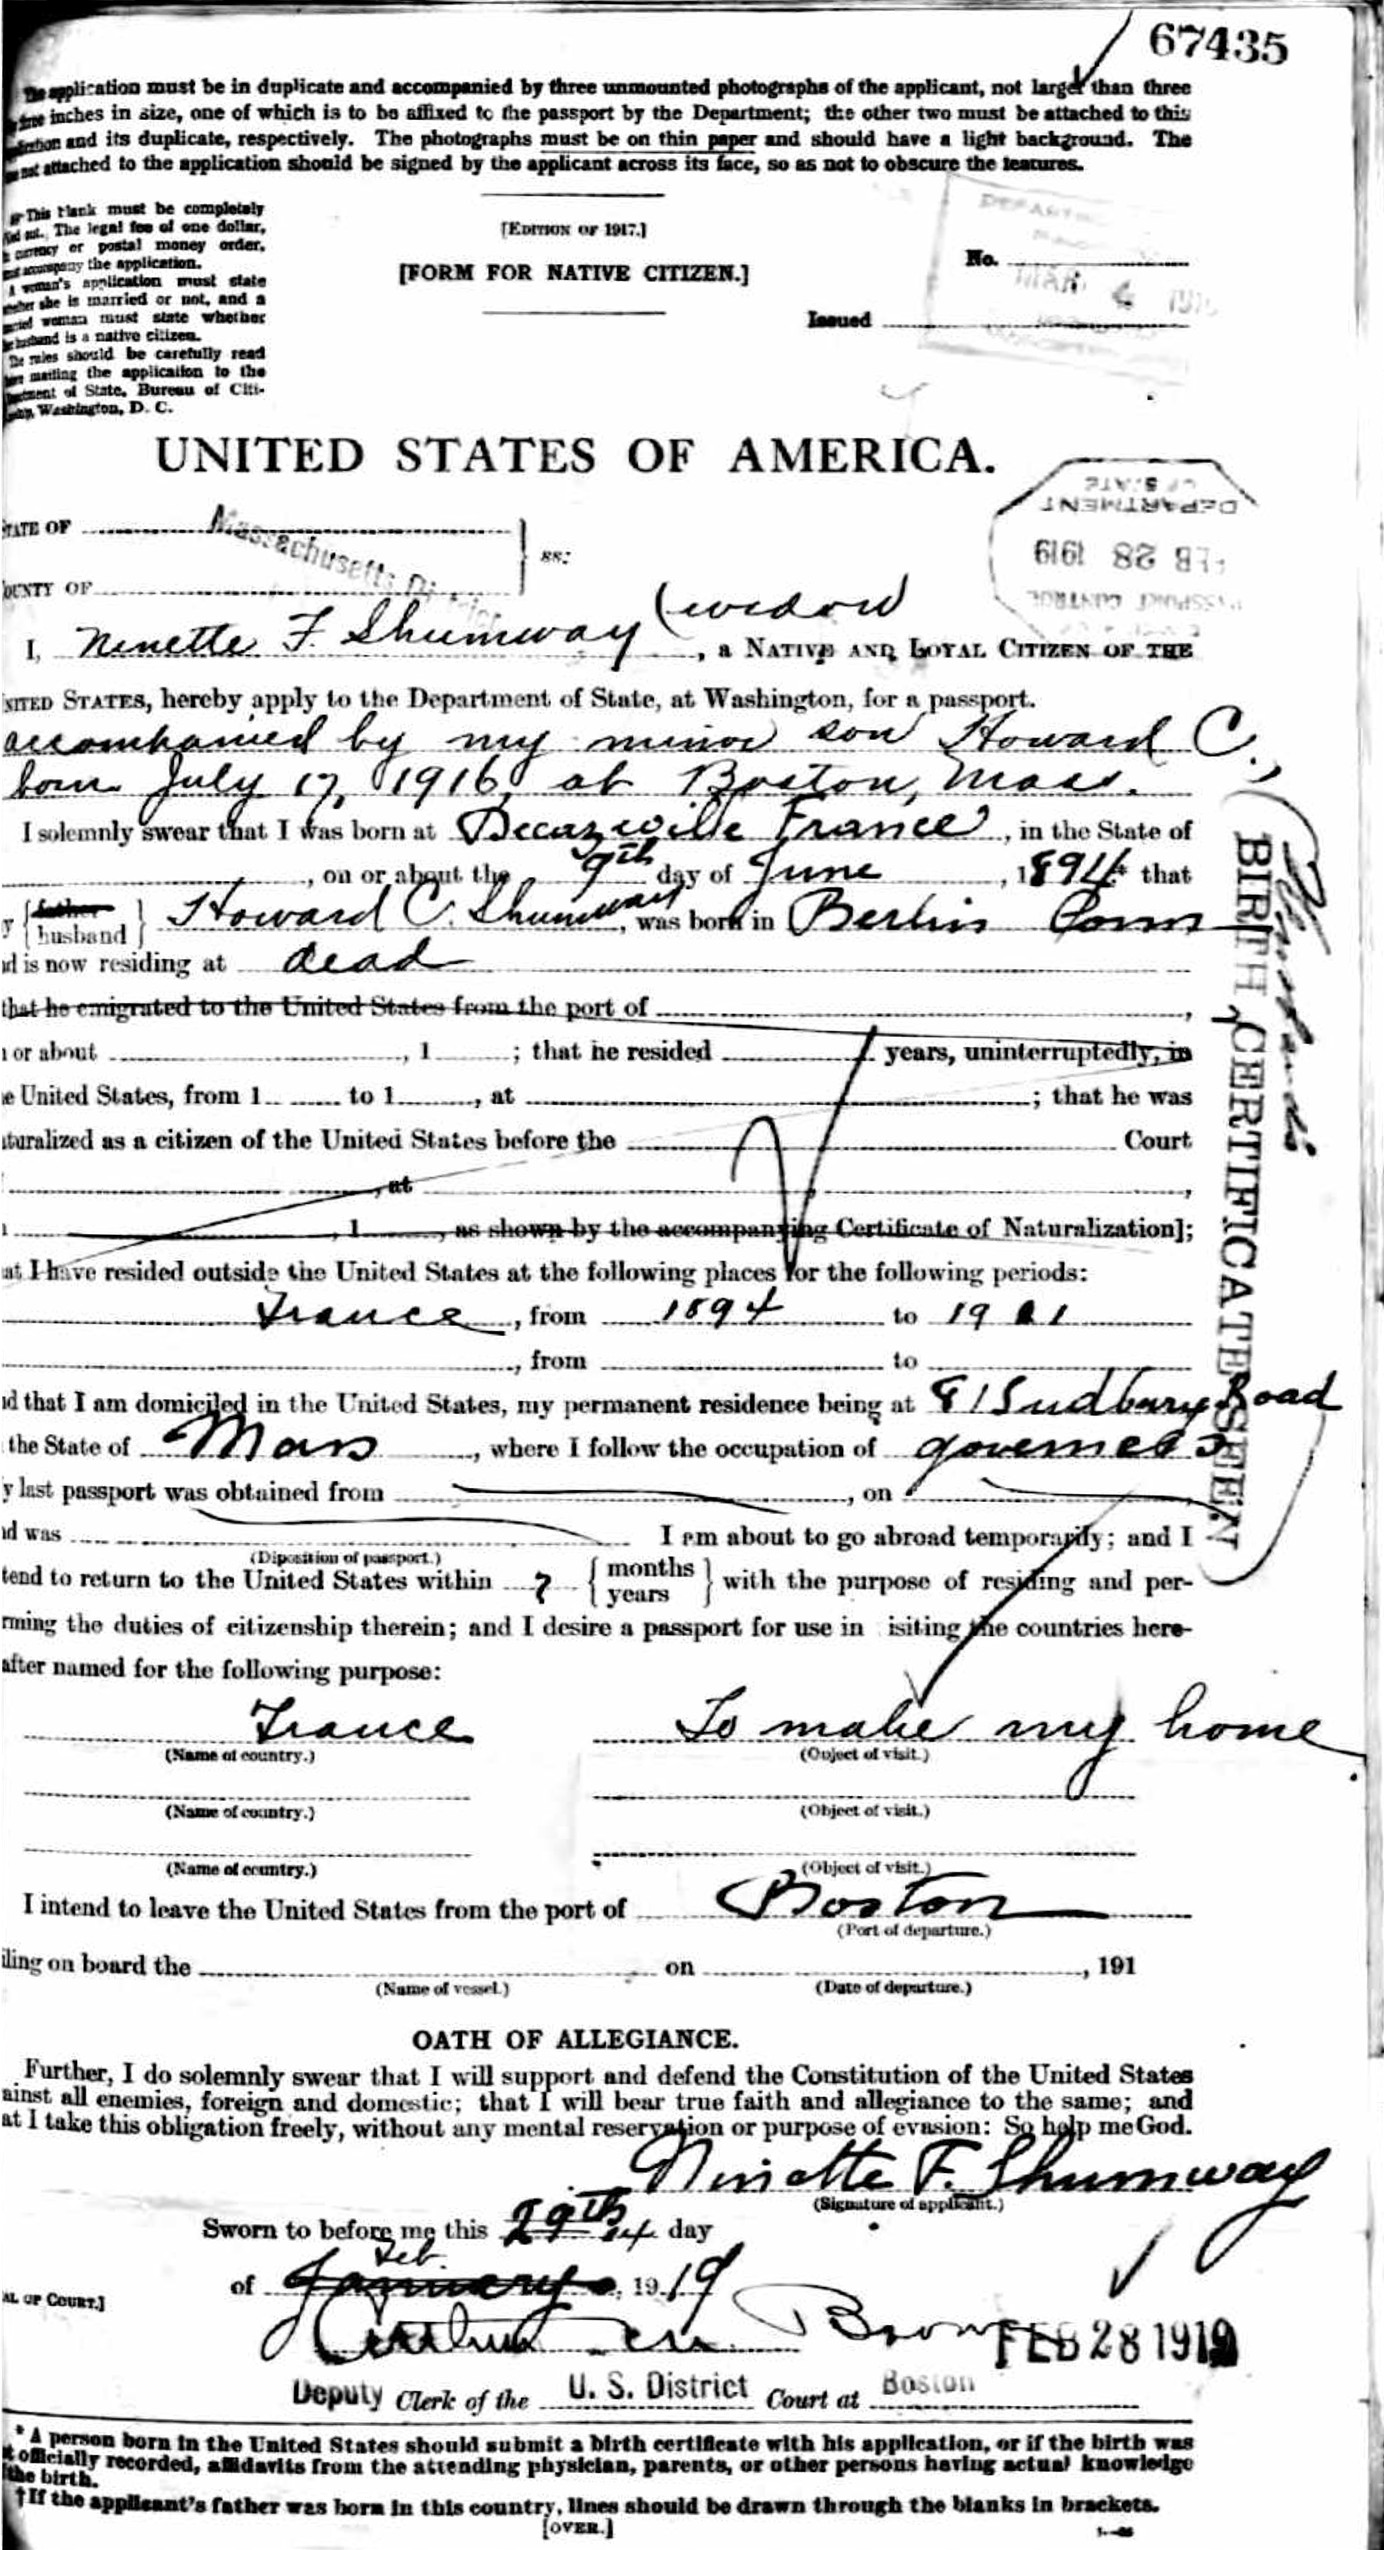 67435
The application must be in duplicate and accompanied by three unmounted photographs of the applicant, not larger than three
inches in size, one of which is to be affixed to the passport by the Department; the other two must be attached to this
and its duplicate, respectively. The photographs must be on thin paper and should have a light background. The
not attached to the application should be signed by the applicant across its face, so as not to obscure the features.
This blank must be completely
out. The legal fee of one dollar,
currency or postal money order,
accompany the application.
A woman's application must state
she is married or not, and a
woman must state whether
husband is a native citizen.
The rules should be carefully read
mailing the application to the
of State, Bureau of Citi-
Washington, D. C.
[EDITION OF 1917.]
[FORM FOR NATIVE CITIZEN.]
No.
MAR 4
Issued
UNITED STATES OF AMERICA.
DEPARTMENT
OF STATE
FEB 28 1919
PASSPORT CONTROL
STATE OF
Massachusetts
ss:
COUNTY OF
I, Ninette F. Shumway (widow, a NATIVE AND LOYAL CITIZEN OF THE
UNITED STATES, hereby apply to the Department of State, at Washington, for a passport.
accompanied by my minor son Howard C.,
born July 17, 1916, at Boston, Mass.
I solemnly swear that I was born at Decazeville France, in the State of
, on or about the 9th day of June, 1894 that
y {father husband} Howard C. Shumway, was born in Berlin Conn
d is now residing at dead
that he emigrated to the United States from the port of ,
or about , 1 ; that he resided years, uninterruptedly, in
e United States, from 1 to 1 , at ; that he was
turalized as a citizen of the United States before the Court
, at ,
, 1 , as shown by the accompanying Certificate of Naturalization];
at I have resided outside the United States at the following places for the following periods:
France, from 1894 to 19 1
, from to
d that I am domiciled in the United States, my permanent residence being at 81 Sudbury Road
the State of Mass, where I follow the occupation of governess
y last passport was obtained from , on
d was I am about to go abroad temporarily; and I
(Diposition of passport.)
tend to return to the United States within ? {months years} with the purpose of residing and per-
rming the duties of citizenship therein; and I desire a passport for use in isiting the countries here-
after named for the following purpose:
France To make my home.
(Name of country.) (Object of visit.)
(Name of country.) (Object of visit.)
(Name of country.) (Object of visit.)
I intend to leave the United States from the port of Boston
(Port of departure.)
iling on board the on , 191
(Name of vessel.) (Date of departure.)
OATH OF ALLEGIANCE.
Further, I do solemnly swear that I will support and defend the Constitution of the United States
ainst all enemies, foreign and domestic; that I will bear true faith and allegiance to the same; and
at I take this obligation freely, without any mental reservation or purpose of evasion: So help me God.
Ninette F. Shumway
(Signature of applicant.)
Sworn to before me this 29th 14 day
Feb.
of January, 1919
AL OF COURT.]
Arthur M. Brown
FEB 28 1919
Deputy Clerk of the U. S. District Court at Boston
* A person born in the United States should submit a birth certificate with his application, or if the birth was
officially recorded, affidavits from the attending physician, parents, or other persons having actual knowledge
the birth.
† If the applicant's father was born in this country, lines should be drawn through the blanks in brackets.
[OVER.]
BIRTH CERTIFICATE SEEN
(Husband's